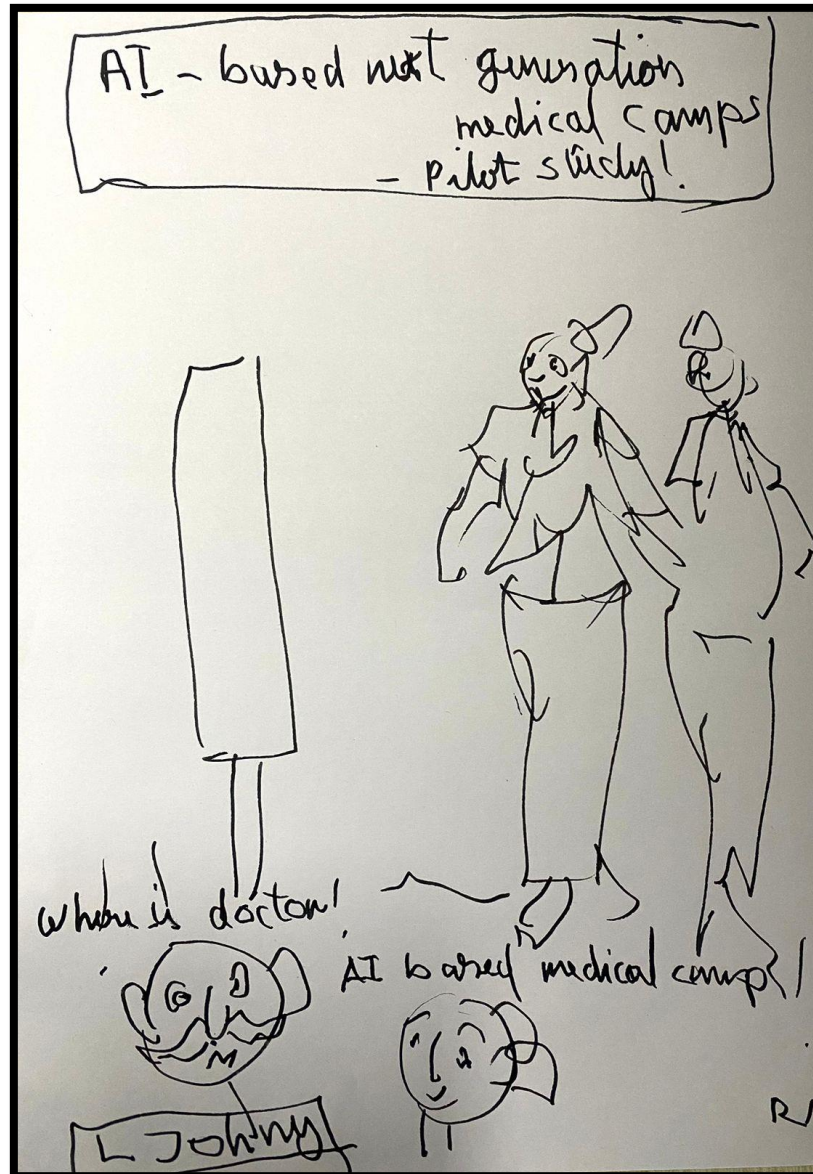 AI - based next generation
medical camps
- pilot study!
where is doctor!
AI based medical camp!
L Johny
R